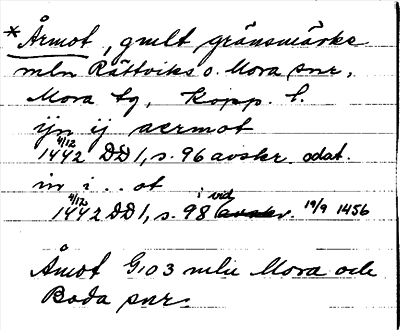 *Årmot, gmlt gränsmärke
mln Rättviks o. Mora snr,
Mora tg, Kopp. l.
ijn ij aermot
4/12 1442 DD 1, s. 96 avskr. odat.
in i .. ot
4/12 1442 DD 1, s. 98 i vid. 19/9 1456
Åmot G103 mln Mora och
Boda snr.